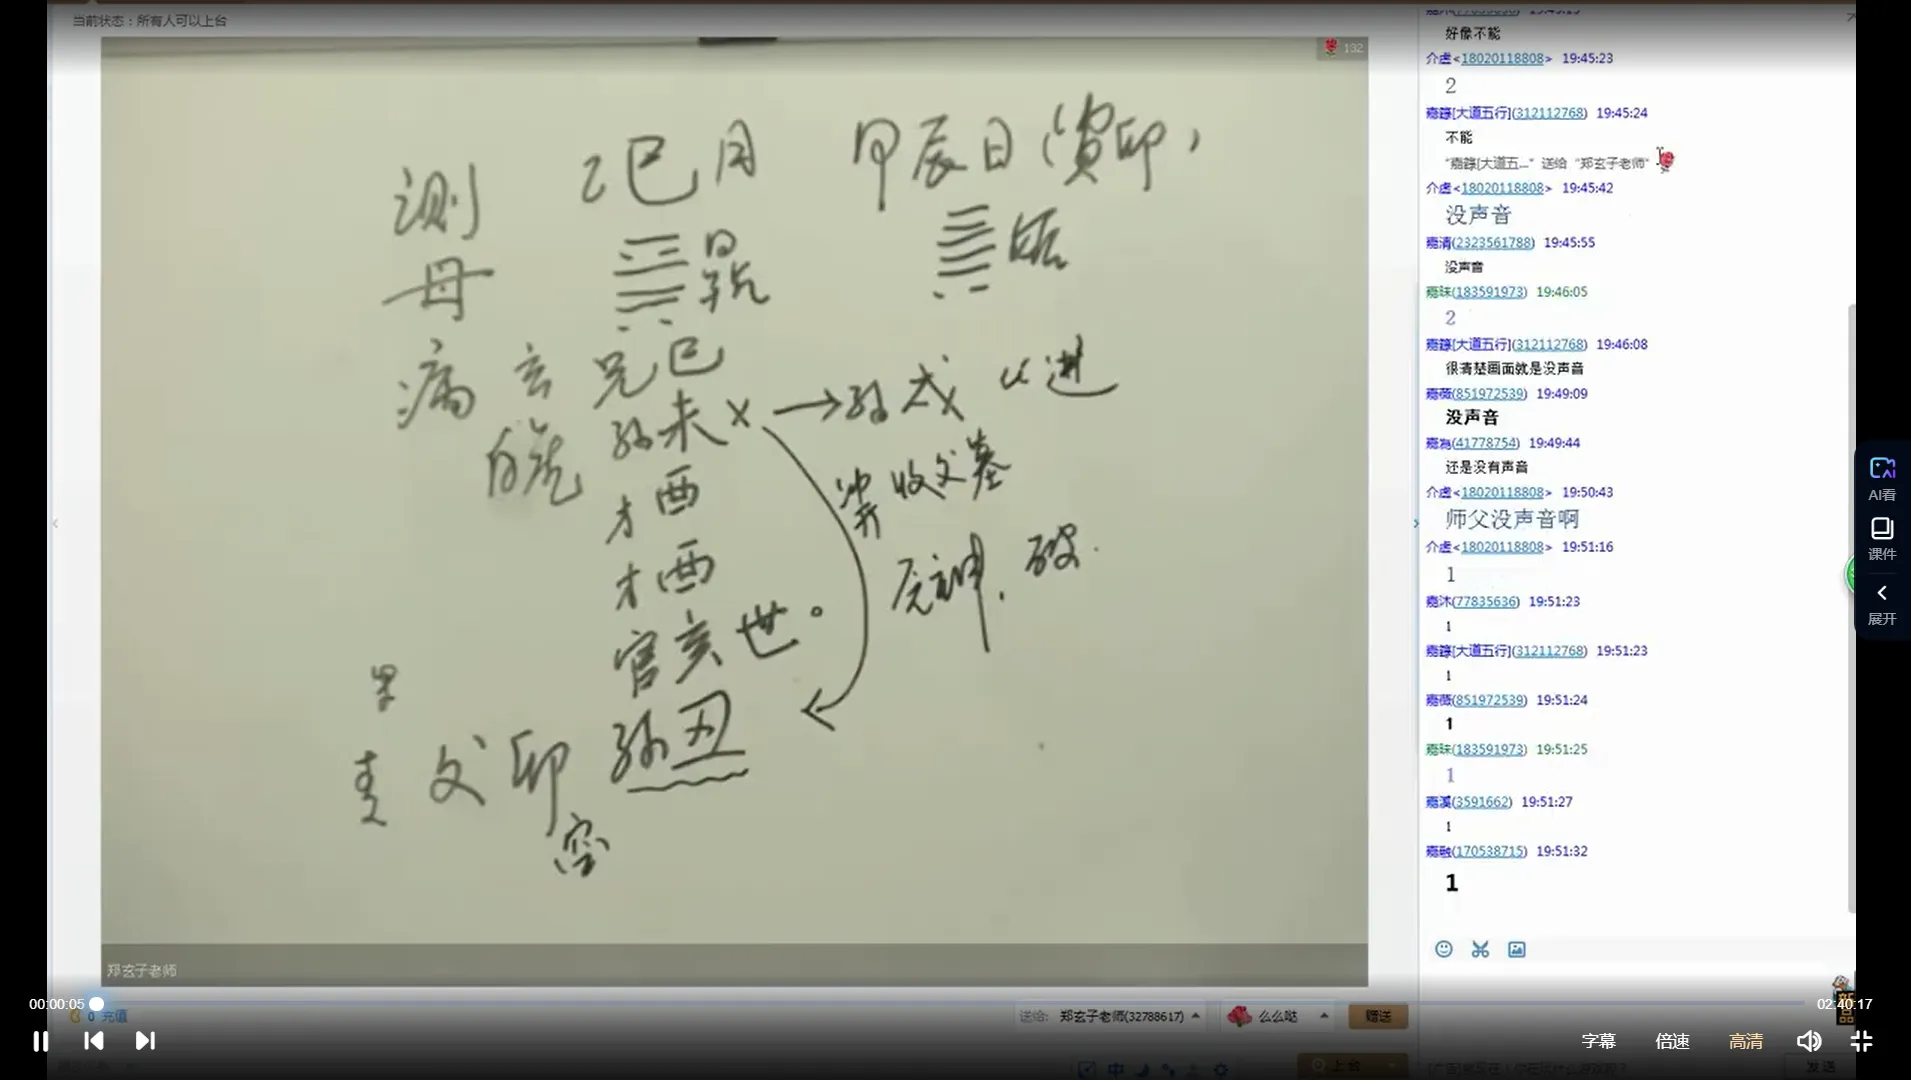 当前状态：所有人可以上台
132
测 乙巳月 甲辰日（寅卯）
母
病
玄 兄巳
孙未 x → 孙戌 化进
才酉
冲开 收父墓
才酉
元神. 破.
官亥世。
父卯 孙丑
空
郑玄子老师
好像不能
介虚<18020118808> 19:45:23
2
[大道五行](312112768) 19:45:24
不能
[大道五..."送给 "郑玄子老师"
介虚<18020118808> 19:45:42
没声音
(2323561788) 19:45:55
没声音
(183591973) 19:46:05
2
[大道五行](312112768) 19:46:08
很清楚画面就是没声音
(851972539) 19:49:09
没声音
(41778754) 19:49:44
还是没有声音
介虚<18020118808> 19:50:43
师父没声音啊
介虚<18020118808> 19:51:16
1
(77835636) 19:51:23
1
[大道五行](312112768) 19:51:23
1
(851972539) 19:51:24
1
(183591973) 19:51:25
1
(3591662) 19:51:27
1
(170538715) 19:51:32
1
AI看
课件
展开
00:00:05
02:40:17
0 充值
送给: 郑玄子老师(32788617)
么么哒
赠送
字幕
倍速
高清
上台
发送